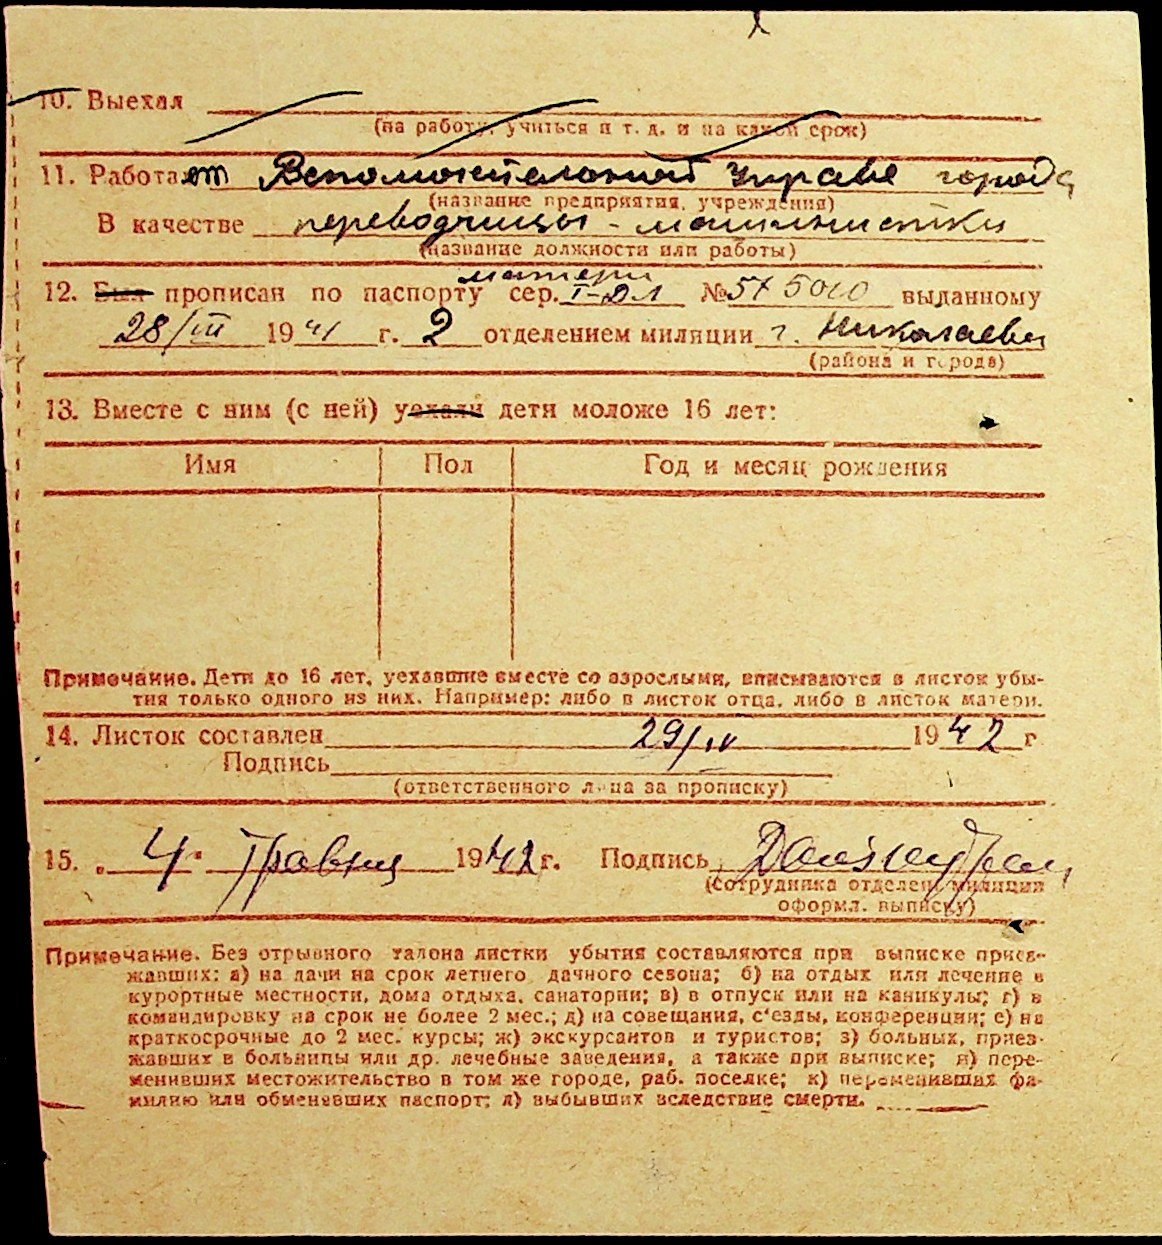 10. Выехал
(на работу, учиться и т. д. и на какой срок)
11. Работает Вспомогательной Управе города
(название предприятия, учреждения)
В качестве переводчицы - машинистки
(название должности или работы)
матери
12. Был прописан по паспорту сер. I-ДЛ № 575010 выданному
28/III 1941 г. 2 отделением милиции г. Николаева
(района и города)
13. Вместе с ним (с ней) уехали дети моложе 16 лет:
Имя Пол Год и месяц рождения
Примечание. Дети до 16 лет, уехавшие вместе со взрослыми, вписываются в листок убы-
тия только одного из них. Например: либо в листок отца, либо в листок матери.
14. Листок составлен 29/IV 1942 г
Подпись
(ответственного лица за прописку)
15. „ 4 " травня 1942 г. Подпись
(сотрудника отделен. милиции
оформл. выписку)
Примечание. Без отрывного талона листки убытия составляются при выписке приез-
жавших: а) на дачи на срок летнего дачного сезона; б) на отдых или лечение в
курортные местности, дома отдыха, санатории; в) в отпуск или на каникулы; г) в
командировку на срок не более 2 мес.; д) на совещания, с'езды, конференции; е) на
краткосрочные до 2 мес. курсы; ж) экскурсантов и туристов; з) больных, приез-
жавших в больницы или др. лечебные заведения, а также при выписке; и) пере-
менивших местожительство в том же городе, раб. поселке; к) переменивших фа-
милию или обменявших паспорт; л) выбывших вследствие смерти.